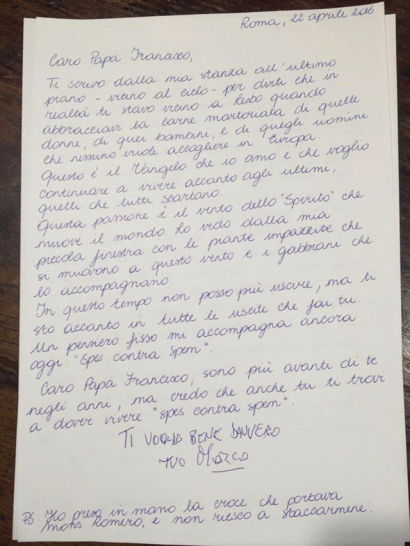 Roma, 22 aprile 2016
Caro Papa Francesco,
Ti scrivo dalla mia stanza all'ultimo
piano - vicino al cielo - per dirti che in
realtà ti stavo vicino a Lesbo quando
abbracciavi la carne martoriata di quelle
donne, di quei bambini, e di quegli uomini
che nessuno vuole accogliere in Europa
Questo è il Vangelo che io amo e che voglio
continuare a vivere accanto agli ultimi,
quelli che tutti scartano.
Questa passione è il vento dello "Spirito" che
muove il mondo lo vedo dalla mia
piccola finestra con le piante impazzite che
si muovono a questo vento e i gabbiani che
lo accompagnano.
In questo tempo non posso più uscire, ma ti
sto accanto in tutte le uscite che fai tu.
Un pensiero fisso mi accompagna ancora
oggi: "Spes contra Spem".
Caro Papa Francesco, sono più avanti di te
negli anni, ma credo che anche tu ti trovi
a dover vivere "spes contra spem".
TI VOGLIO BENE DAVVERO
TUO MARCO
PS Ho preso in mano la croce che portava
mons Romero, e non riesco a staccarmene.